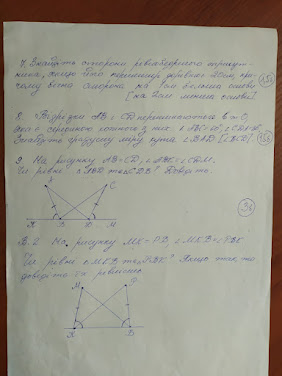 7. Знайдіть сторони рівнобедреного трикут-
ника, якщо його периметр дорівнює 20см, при
чому бічна сторона на 1см більша основи
[на 2см менша основи]
8. Відрізки AB і CD перетинаються в т. O,
яка є серединою кожного з них.
Знайдіть градусну міру кута ∠BAD
9. На рисунку AB = CD, ∠ABC = ∠CDM.
Чи рівні △ABD та △CDB? Доведіть.
A C
K B D M
3б
В. 2. На рисунку MK = PB, ∠MKB = ∠PBK
Чи рівні △MKB та △PBK? Якщо так, то
доведіть їх рівність
M P
K B